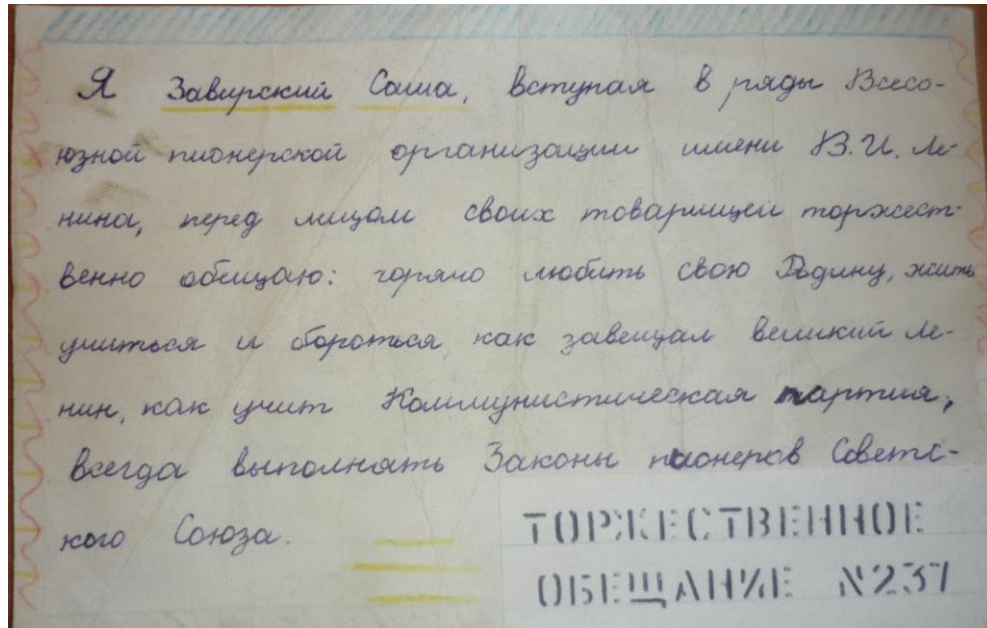 Я Завирский Саша, вступая в ряды Всесо-
юзной пионерской организации имени В.И. Ле-
нина, перед лицом своих товарищей торжест-
венно обещаю: горячо любить свою Родину, жить
учиться и бороться, как завещал великий Ле-
нин, как учит Коммунистическая партия,
всегда выполнять Законы пионеров Советс-
кого Союза.
ТОРЖЕСТВЕННОЕ
ОБЕЩАНИЕ N237